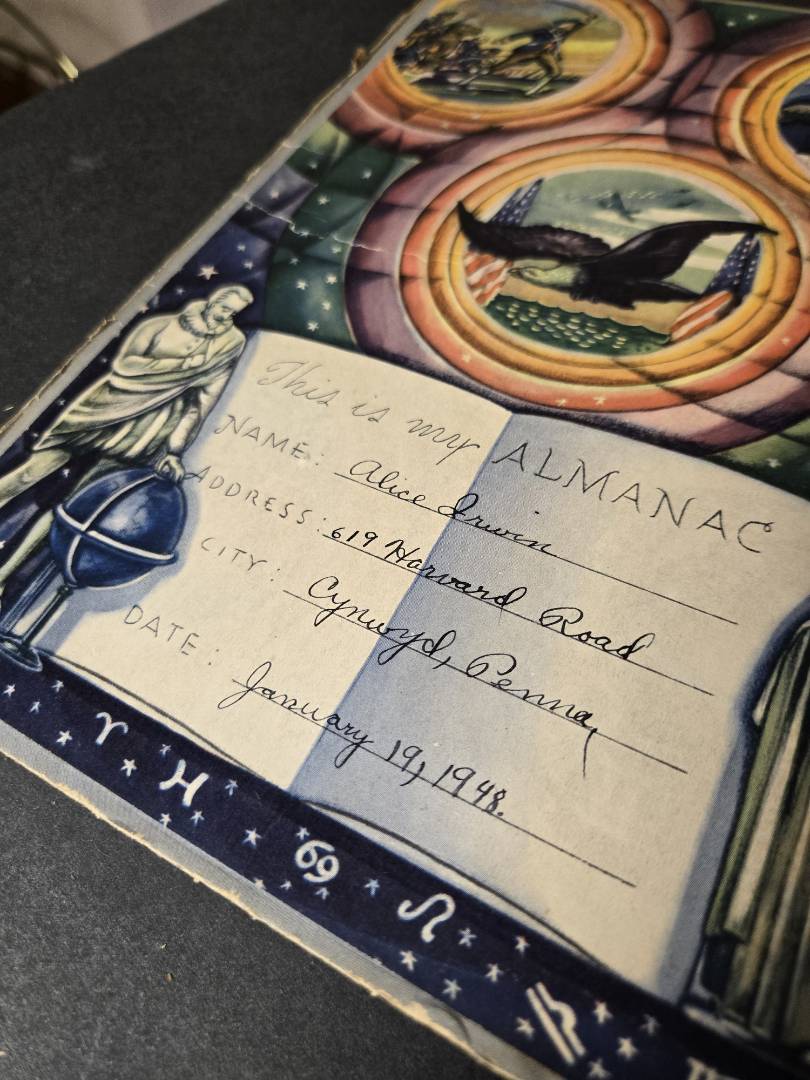 This is my ALMANAC
NAME: Alice Irwin
ADDRESS: 619 Harvard Road
CITY: Cynwyd, Penna,
DATE: January 19, 1948.